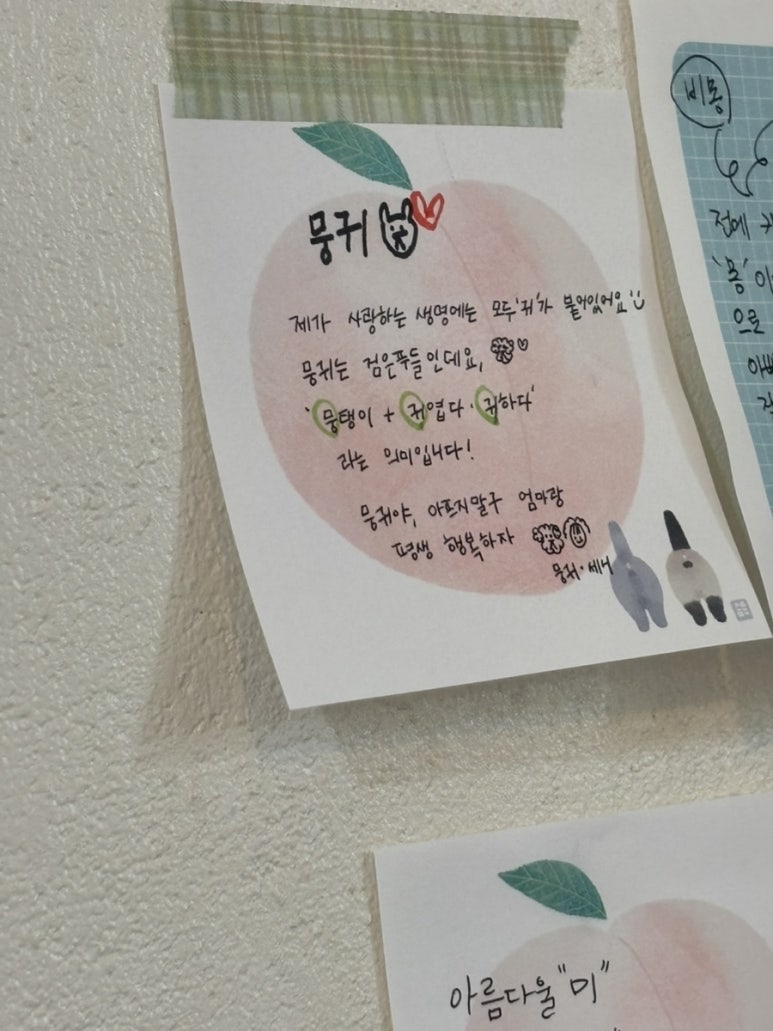 뭉귀
제가 사랑하는 생명에는 모두 '귀'가 붙어있어요
뭉귀는 검은푸들인데요,
'뭉탱이 + 귀엽다·귀하다'
라는 의미입니다!
뭉귀야, 아프지말구 엄마랑
평생 행복하자
뭉귀·세니
비몽
전에
'몽'이
으로
아름다울 "미"